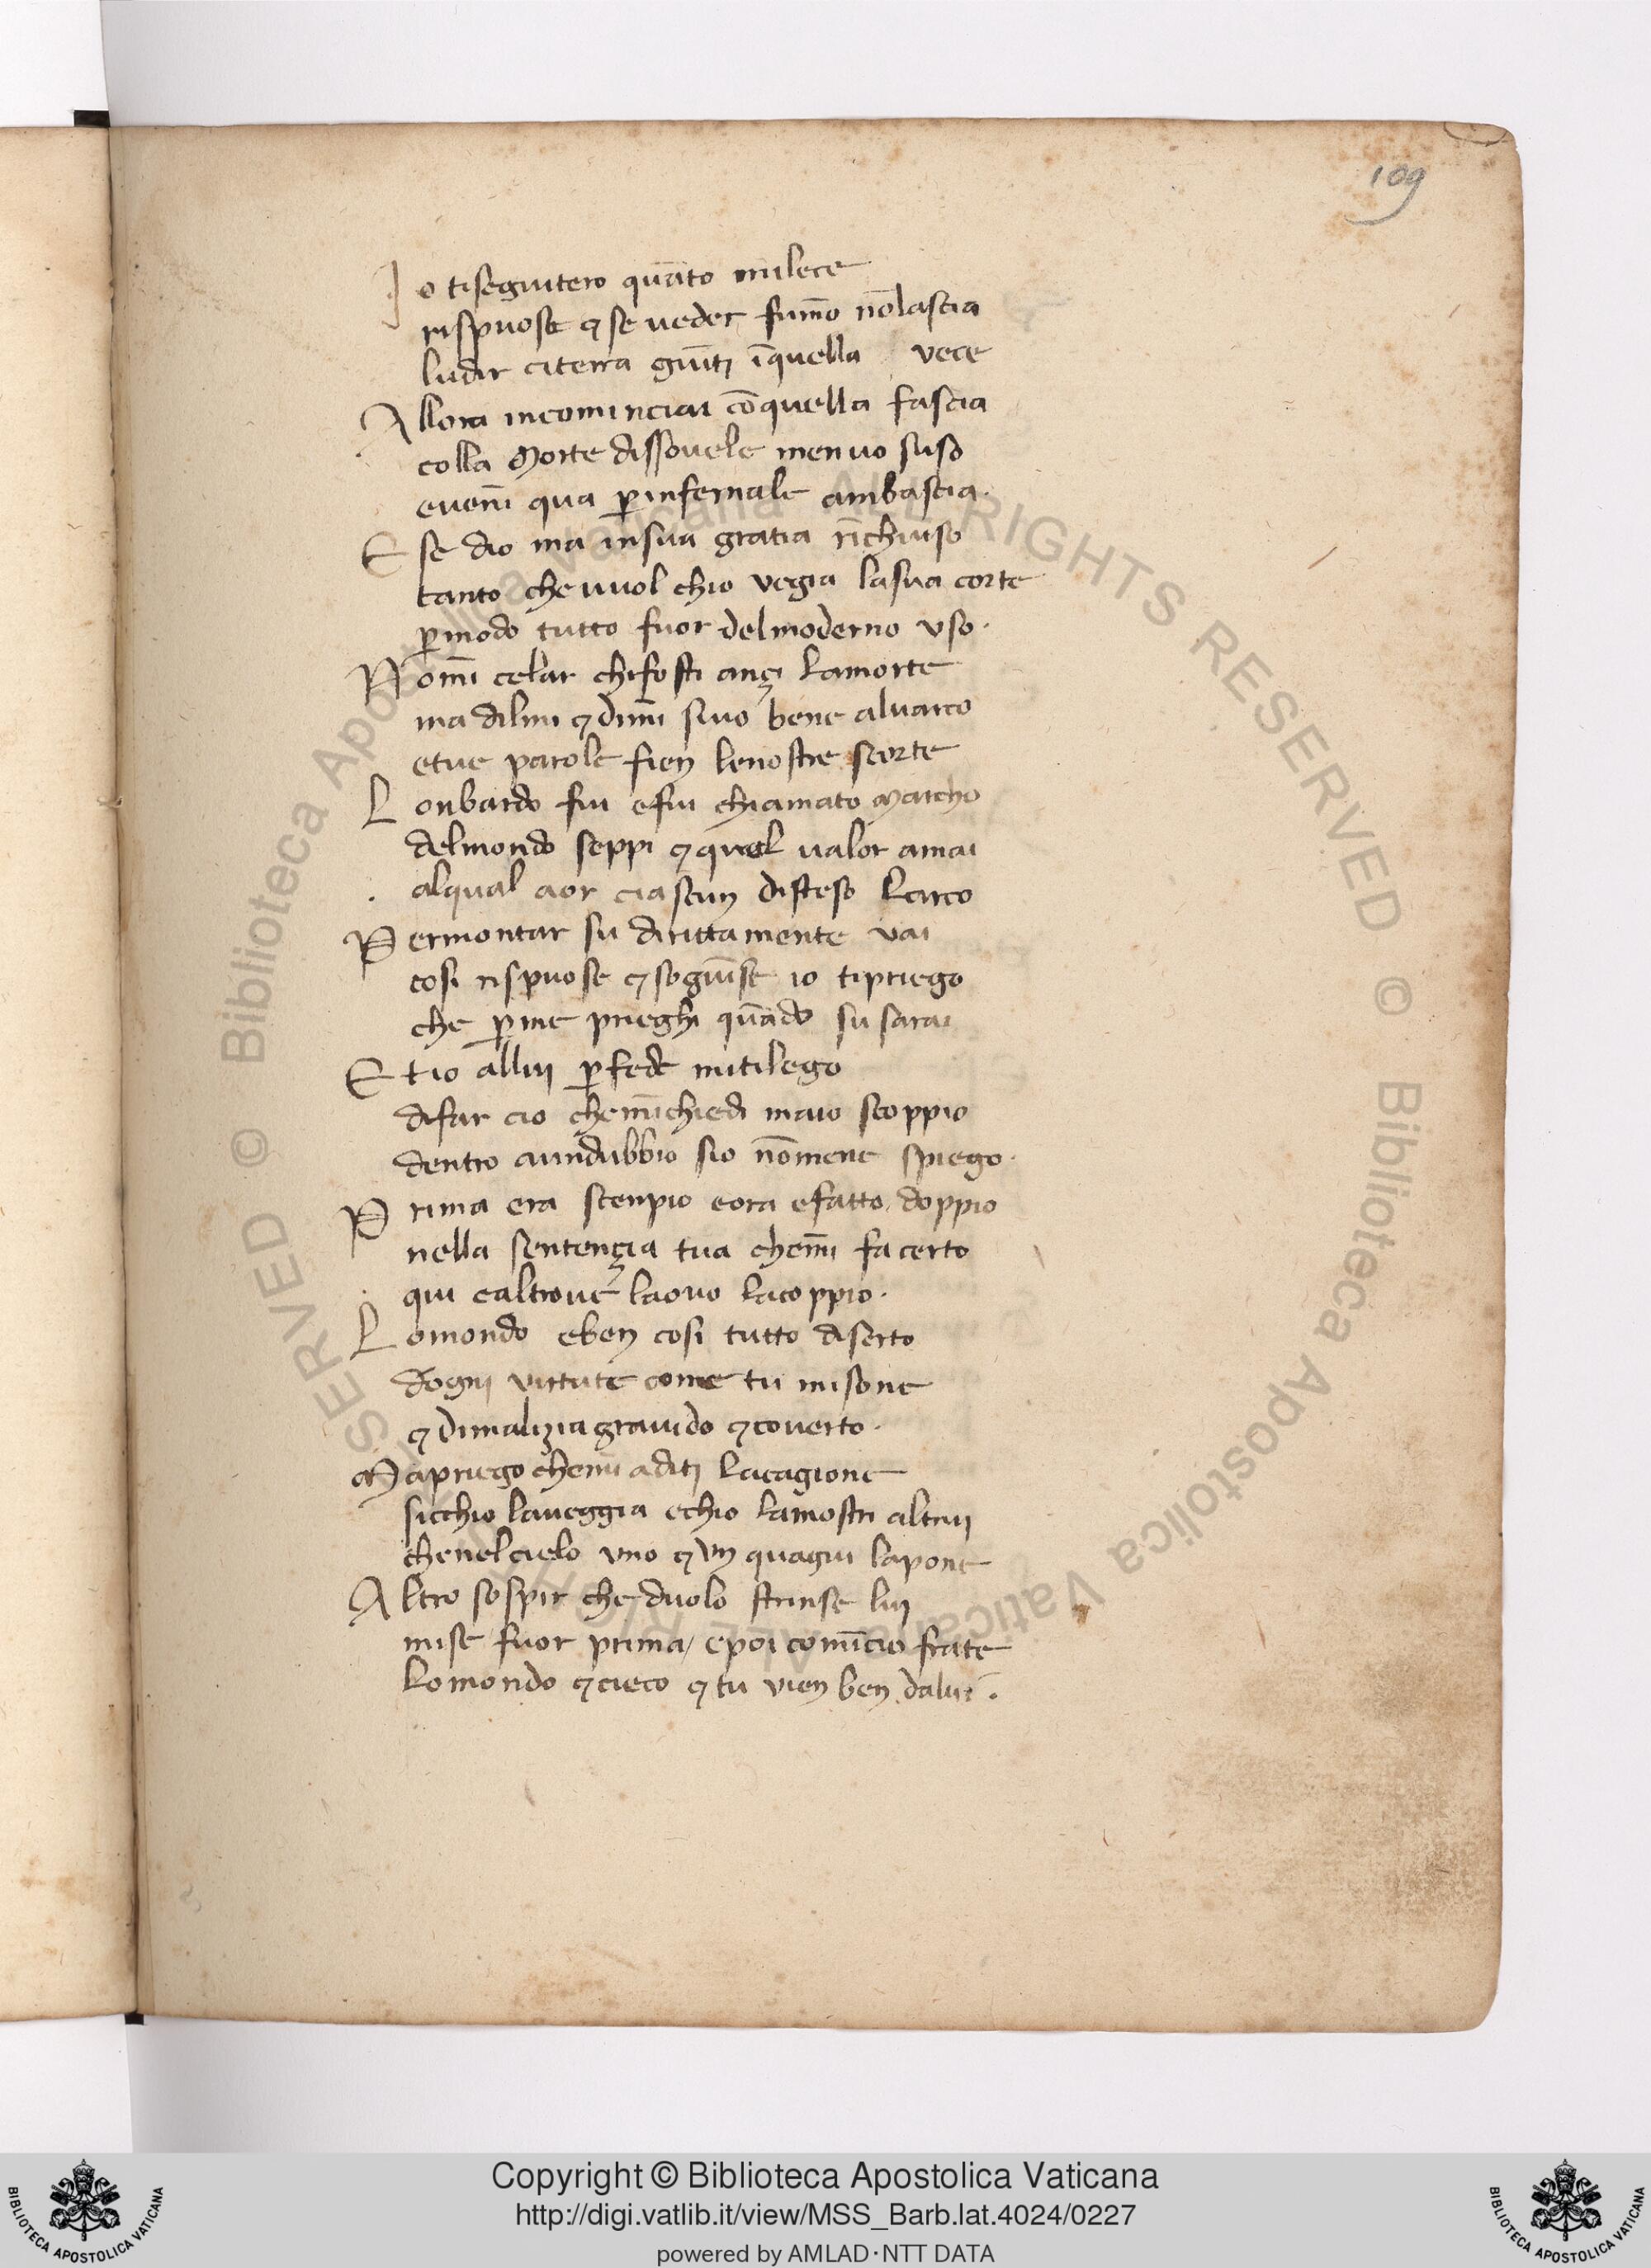 109
Io tiseguitero quāto milece
rispuose ⁊ se ueder fum̄o nōlascia
ludir citerra giūti īquella vece
Allora incominciai cōquella fascia
colla Morte dissouele menuo suso
euen̄i qua ꝑinfernale ambascia.
E se dio ma insua gratia rīchiuso
tanto che uuol chio vegia lasua corte
ꝑmodo tutto fuor delmoderno vso.
Nom̄i celar chifosti ançi lamorte
ma dilmi ⁊ dim̄i siuo bene aluarco
etue parole fien lenostre scorte
Lonbardo fui efui chiamato Marcho
delmondo seppi ⁊ quel ualor amai
alqual aor ciascun disteso Larco
Permontar su dirittamente vai
cosi rispuose ⁊ sogiūse io tipriego
che ꝑme prieghi quādo su sarai
Et io allui ꝑfede mitilego
difar cio chem̄ichiedi maio scoppio
dentro aundubbio sio nōmene spiego.
Prima era scenpio eora efatto doppio
nella sentençia tua chem̄i fa certo
qui ealtroue laouo lacoppio.
Lomondo eben cosi tutto diserto
dogni virtute come tu misone
⁊ dimalizia grauido ⁊ couerto.
Mapriego chemi aditi lacagione
sicchio laueggia echio lamostri altrui
chenelcielo vno ⁊ vn quagiu lapone
Altro sospir che duolo strinse lui
mise fuor prima / epoi comīcio frate
lomondo ⁊ cieco ⁊ tu vien ben dalui.
© Biblioteca Apostolica Vaticana ALL RIGHTS RESERVED © Biblioteca Apostolica Vaticana ALL RIGHTS RESERVED
Copyright © Biblioteca Apostolica Vaticana
http://digi.vatlib.it/view/MSS_Barb.lat.4024/0227
powered by AMLAD·NTT DATA
BIBLIOTECA APOSTOLICA VATICANA
BIBLIOTECA APOSTOLICA VATICANA